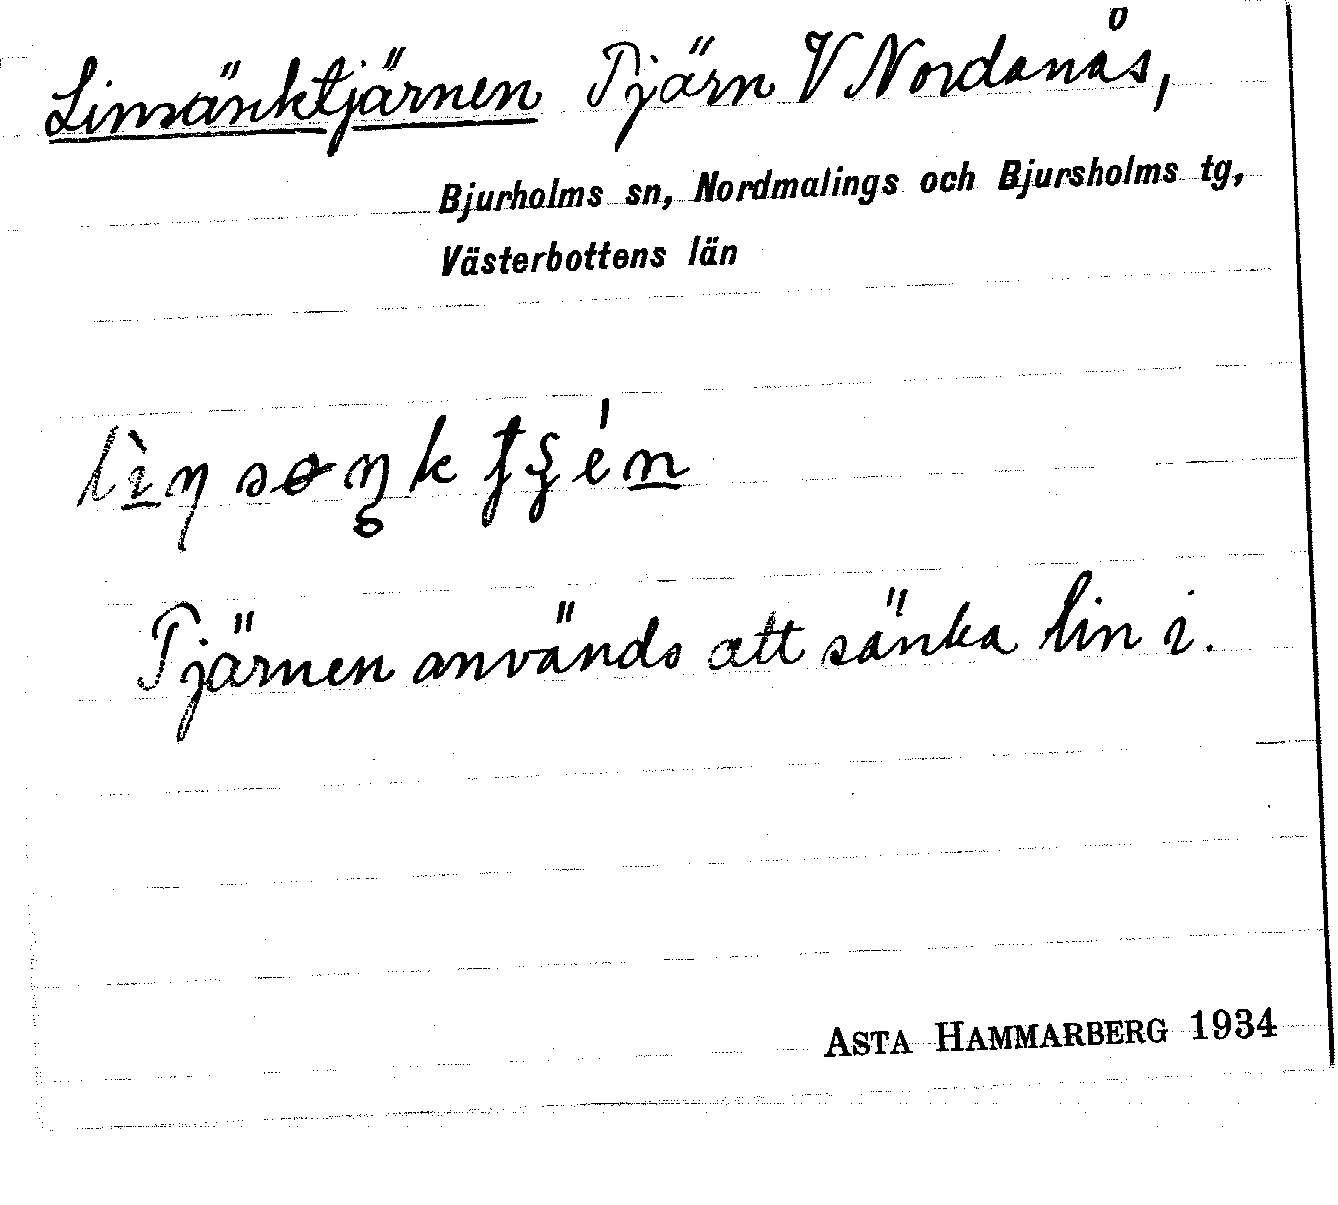 Linsänktjärnen Tjärn V Nordanås,
Bjurholms sn, Nordmalings och Bjursholms tg,
Västerbottens län
Tjärnen används att sänka lin i.
ASTA HAMMARBERG 1934